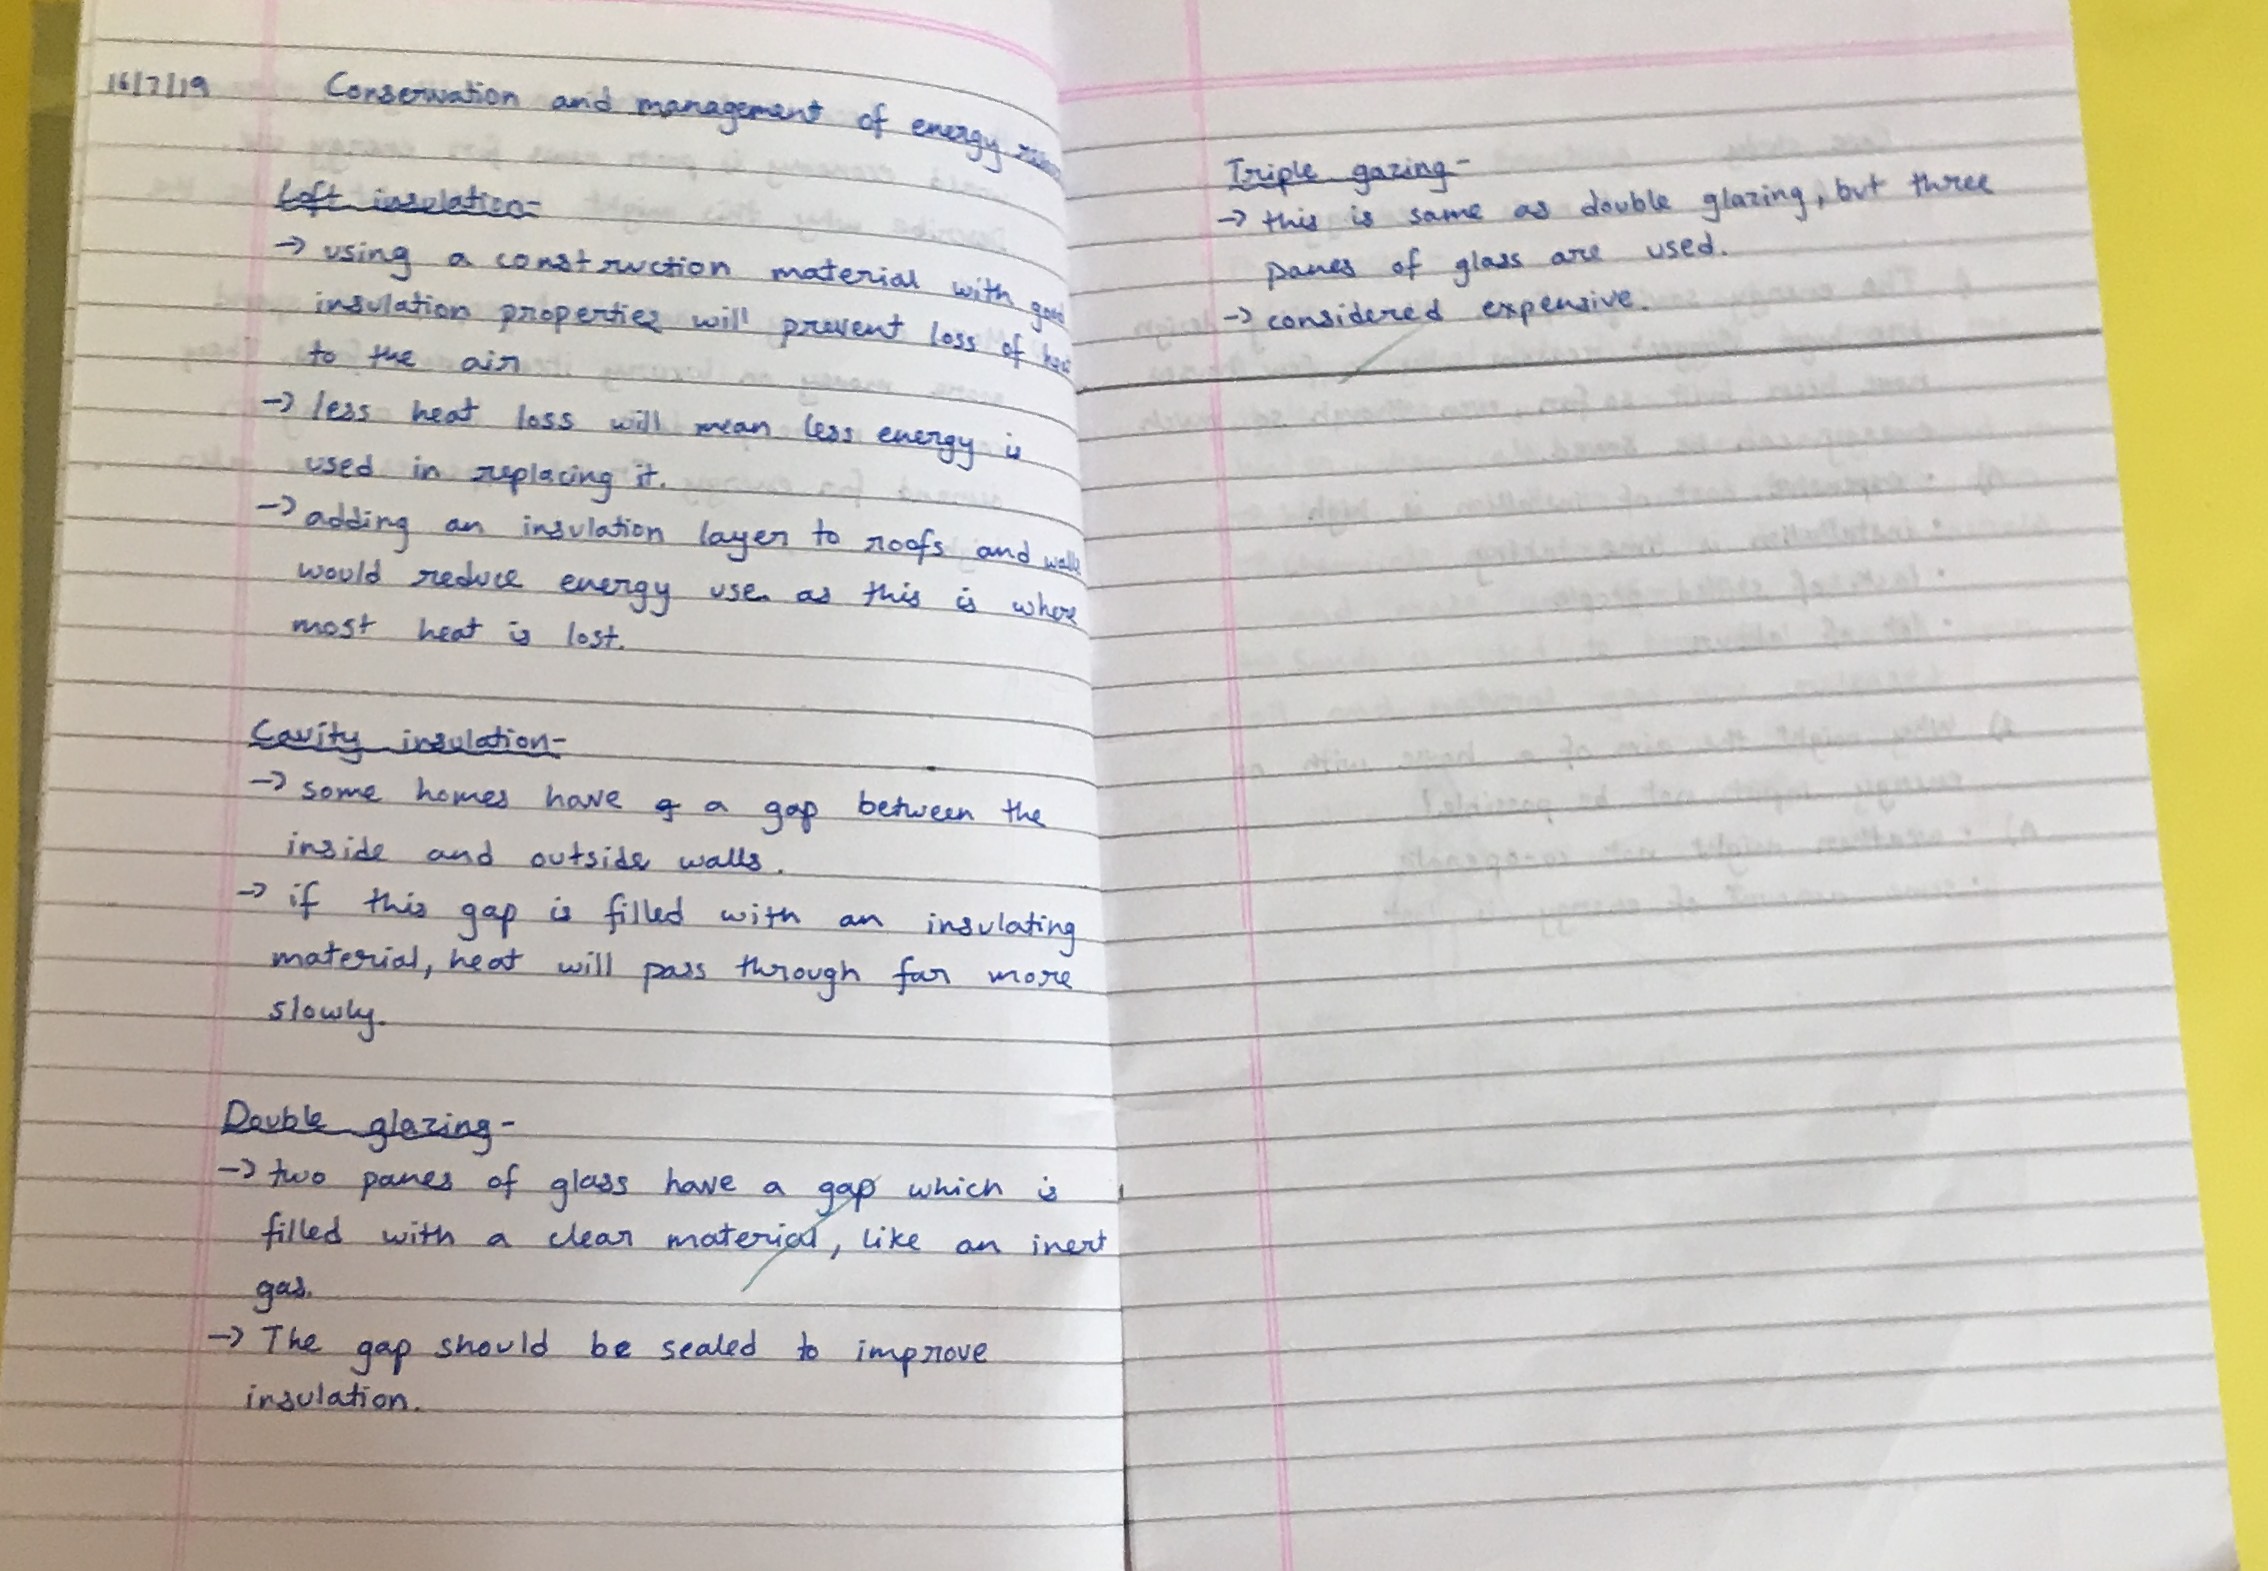 16/7/19 Conservation and management of energy
Loft insulation-
→ using a construction material with good
insulation properties will prevent loss of heat
to the air
→ less heat loss will mean less energy is
used in replacing it.
→ adding an insulation layer to roofs and walls
would reduce energy use as this is where
most heat is lost.
Cavity insulation-
→ some homes have a gap between the
inside and outside walls.
→ if this gap is filled with an insulating
material, heat will pass through far more
slowly.
Double glazing-
→ two panes of glass have a gap which is
filled with a clear material, like an inert
gas.
→ The gap should be sealed to improve
insulation.
Triple gazing-
→ this is same as double glazing, but three
panes of glass are used.
→ considered expensive.